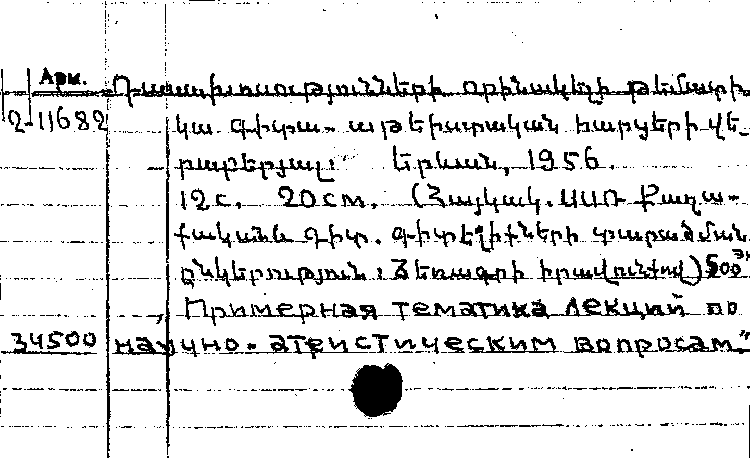 Арм.
Դասախոսությունների օրինակելի թեմատի-
2-11682 կա գիտա-աթեիստական հարցերի վե-
րաբերյալ: Երևան, 1956.
12с. 20см. (Հայկակ. ՍՍՌ Քաղա-
քական և Գիտ. գիտելիքների տարածման
ընկերություն: Ձեռագրի իրավունքով) 500 Э.
„Примерная тематика лекций по
34500 научно-атристическим вопросам."